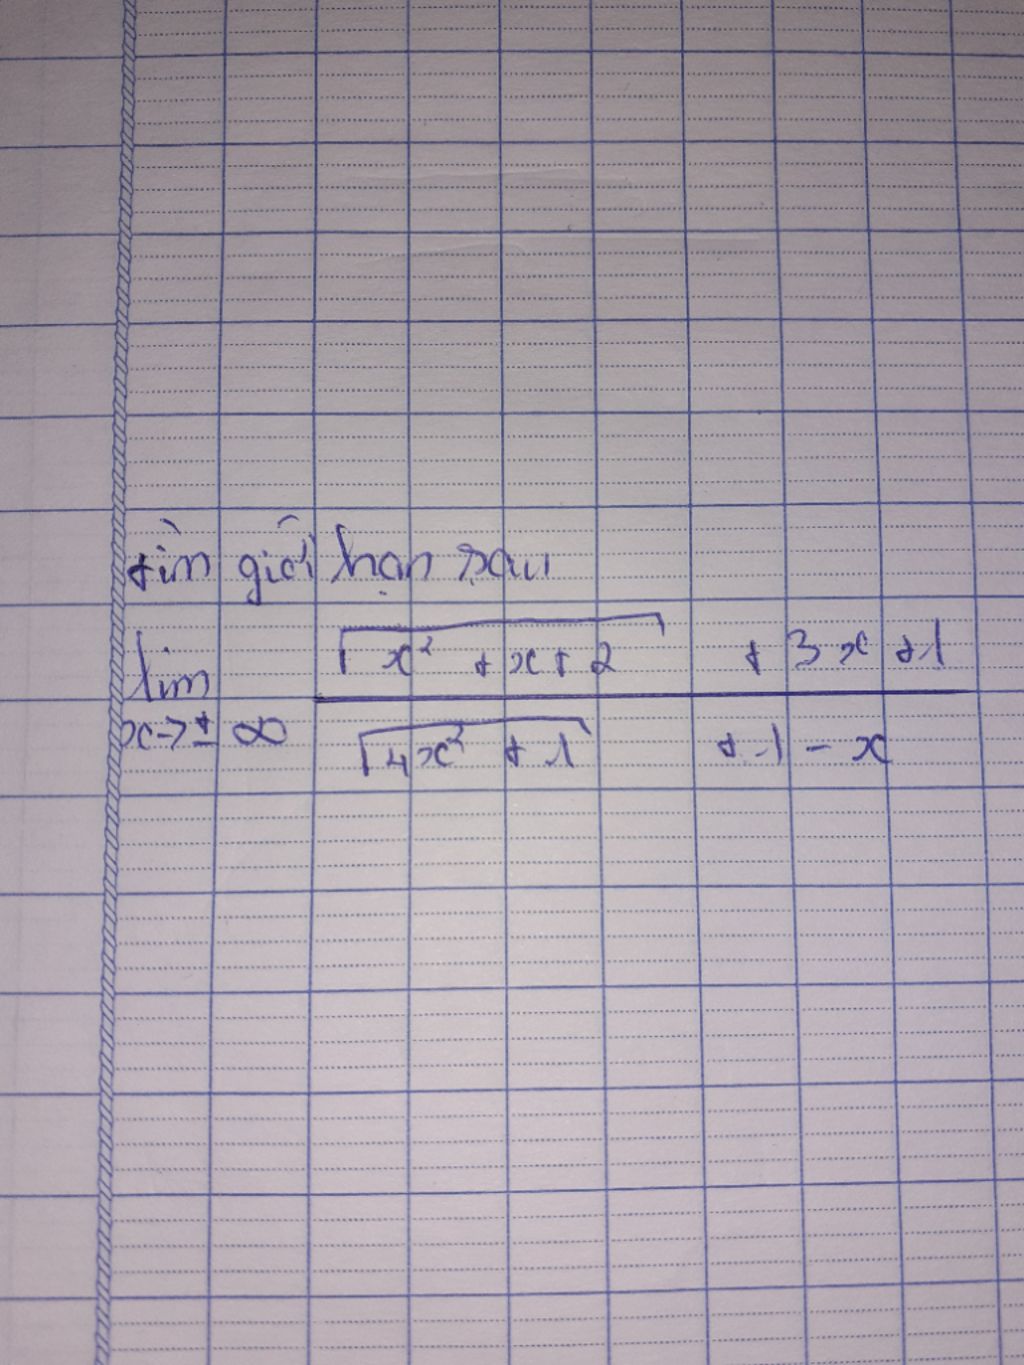 tìm giới hạn sau
lim x→±∞ (√(x² + x + 2) + 3x + 1) / (√(4x² + 1) + 1 - x)